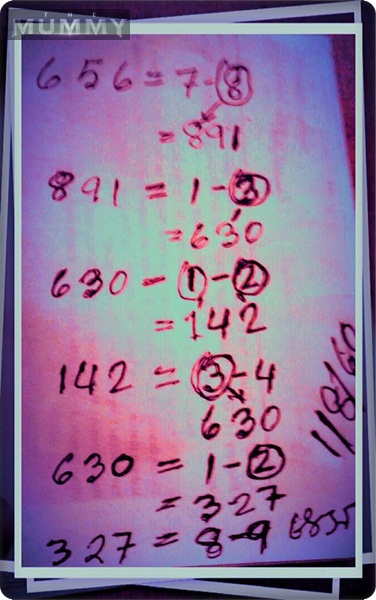 MUMMY
656 = 7-8
= 891
891 = 1-3
= 630
630 - 1-2
= 142
142 = 3-4
630
630 = 1-2
= 327
327 = 8-9